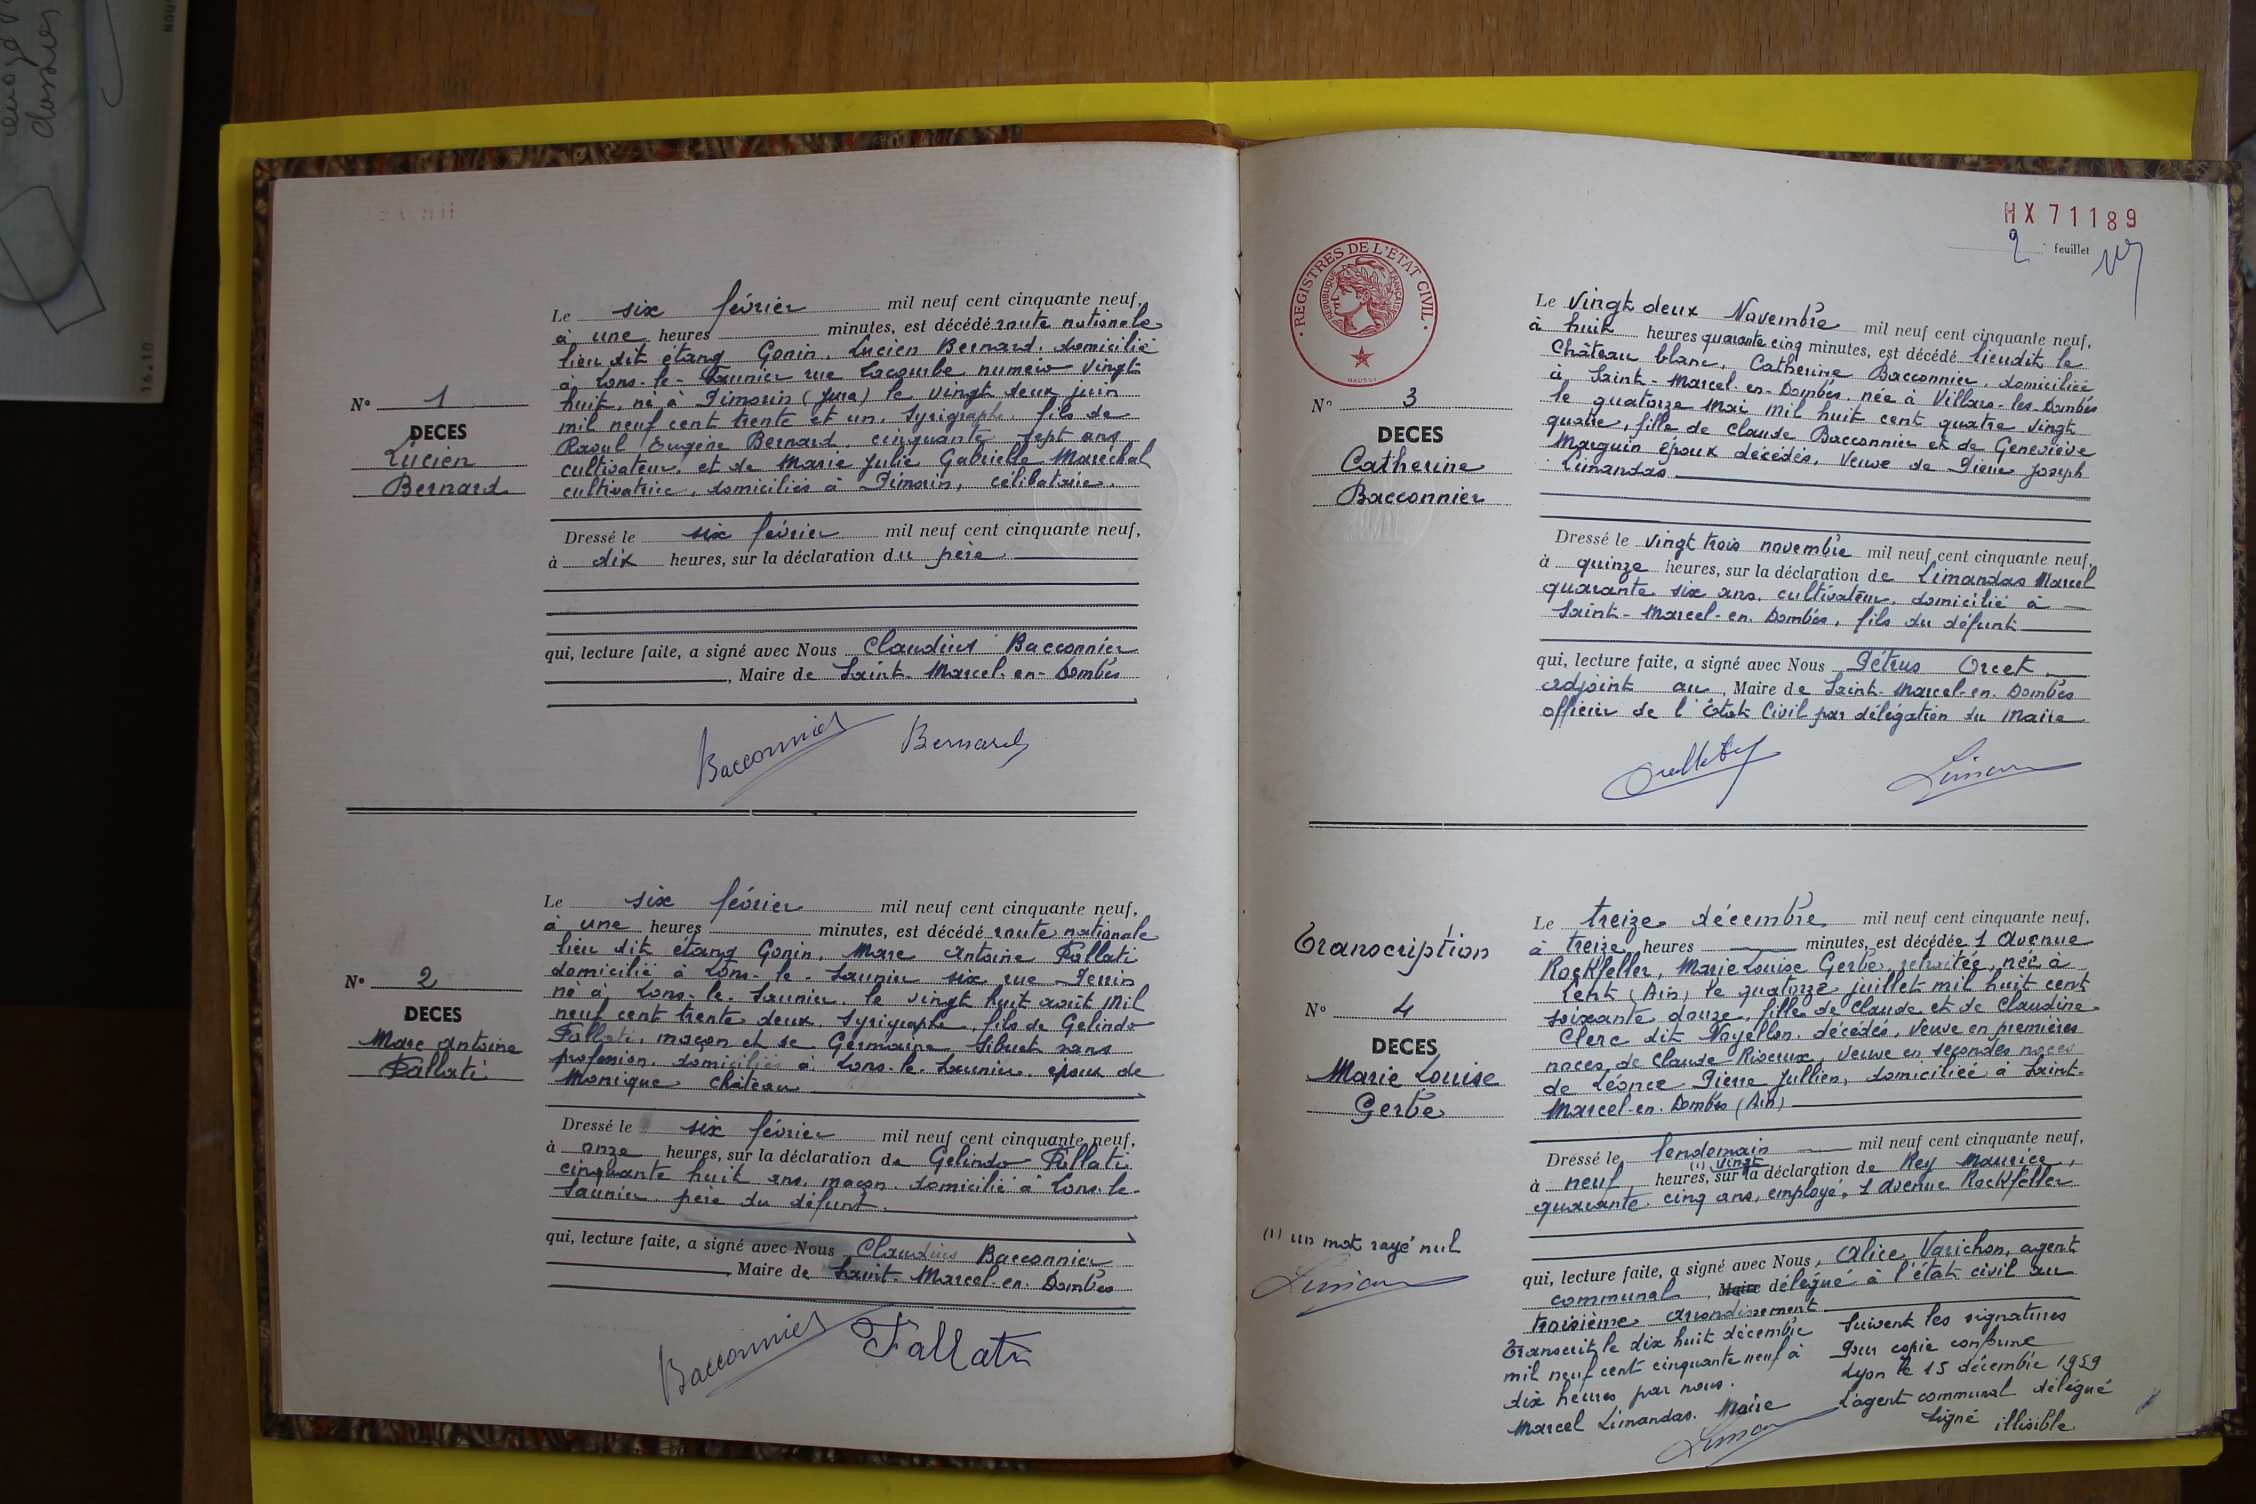 N° 1
DECES
Lucien
Bernard
Le six février mil neuf cent cinquante neuf,
à une heures minutes, est décédé route nationale
lieu dit étang Gonin, Lucien Bernard, domicilié
à Lons-le-Saunier rue Lacombe numéro vingt
huit, né à Pimorin (Jura) le vingt deux juin
mil neuf cent trente et un, Syrigraphe, fils de
Raoul Eugène Bernard, cinquante sept ans
cultivateur, et de Marie Julie Gabrielle Maréchal
cultivatrice, domiciliés à Pimorin, célibataire.
Dressé le six février mil neuf cent cinquante neuf,
à dix heures, sur la déclaration du père
qui, lecture faite, a signé avec Nous Claudius Bacconnier
, Maire de Saint-Marcel-en-Dombes
Bacconnier Bernard
N° 2
DECES
Marc Antoine
Fallati
Le six février mil neuf cent cinquante neuf,
à une heures minutes, est décédé route nationale
lieu dit étang Gonin, Marc Antoine Fallati
domicilié à Lons-le-Saunier six rue Perrin
né à Lons-le-Saunier le vingt huit août mil
neuf cent trente deux, Syrigraphe, fils de Gelindo
Fallati, maçon et de Germaine Sibuet sans
profession, domiciliés à Lons-le-Saunier, époux de
Monique Château
Dressé le six février mil neuf cent cinquante neuf,
à onze heures, sur la déclaration de Gelindo Fallati
cinquante huit ans, maçon domicilié à Lons-le-
Saunier, père du défunt.
qui, lecture faite, a signé avec Nous Claudius Bacconnier
, Maire de Saint-Marcel-en-Dombes
Bacconnier Fallati
HX 71189
2 feuillet
REGISTRES DE L'ETAT CIVIL
REPUBLIQUE FRANÇAISE
N° 3
DECES
Catherine
Bacconnier
Le vingt deux Novembre mil neuf cent cinquante neuf,
à huit heures quarante cinq minutes, est décédé lieudit le
Château blanc, Catherine Bacconnier, domiciliée
à Saint-Marcel-en-Dombés, née à Villars-les-Dombés
le quatorze Mai mil huit cent quatre vingt
quatre, fille de Claude Bacconnier et de Geneviève
Marguin époux décédés, Veuve de Pierre Joseph
Limandas
Dressé le vingt trois novembre mil neuf cent cinquante neuf,
à quinze heures, sur la déclaration de Limandas Marcel
quarante six ans, cultivateur, domicilié à
Saint-Marcel-en-Dombés, fils du défunt
qui, lecture faite, a signé avec Nous Pétrus Orcet
adjoint au, Maire de Saint-Marcel-en-Dombés
officier de l'Etat Civil par délégation du Maire
Transcription
N° 4
DECES
Marie Louise
Gerbe
Le treize décembre mil neuf cent cinquante neuf,
à treize heures minutes, est décédée 1 Avenue
Rockfeller, Marie Louise Gerbe, retraitée, née à
Lent (Ain) le quatorze juillet mil huit cent
soixante douze, fille de Claude et de Claudine
Clerc dit Noyellon, décédés, Veuve en premières
noces de Claude Rivoux, veuve en secondes noces
de Léonce Pierre Jullien, domiciliée à Saint-
Marcel-en-Dombés (Ain)
Dressé le lendemain mil neuf cent cinquante neuf,
(1) vingt
à neuf heures, sur la déclaration de Rey Maurice,
quarante cinq ans, employé, 1 avenue Rockfeller
(1) un mot rayé nul
qui, lecture faite, a signé avec Nous, Alice Varichon, agent
communal, Maire délégué à l'état civil au
troisième arrondissement
Transcrit le dix huit décembre
mil neuf cent cinquante neuf à
dix heures par nous.
Marcel Limandas. Maire
Suivent les signatures
Pour copie conforme
Lyon le 15 décembre 1959
L'agent communal délégué
Signé illisible